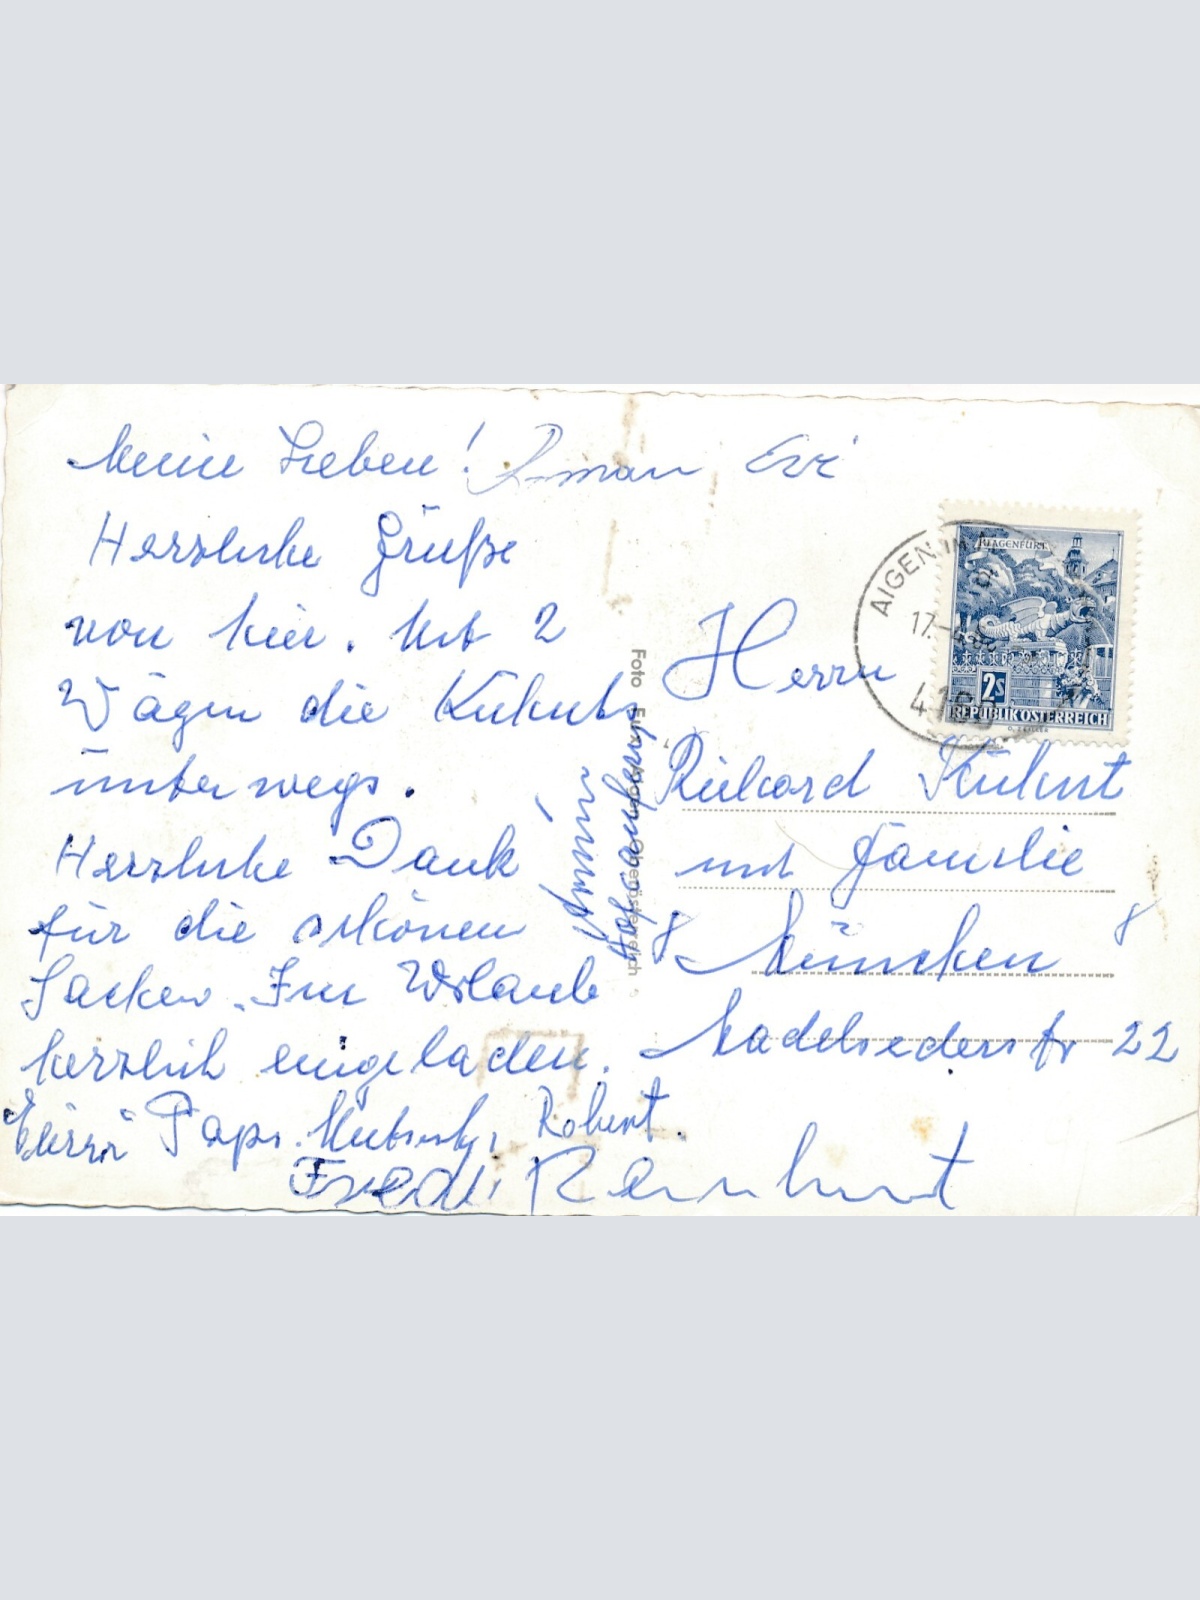 Meine Lieben! Roman Evi
Herzliche Grüße
von hier. Mit 2
Wägen die Kühnts
unterwegs.
Herzliche Dank
für die schönen
Sachen. Im Urlaub
herzlich eingeladen.
Papi. Robert.
Fredi Reinhart
Foto
Oberösterreich
AIGEN IM
17.
KLAGENFURT
2S
REPUBLIK ÖSTERREICH
Herrn
Richard Kühnt
mit Familie
8 München 8
Madelsederstr 22